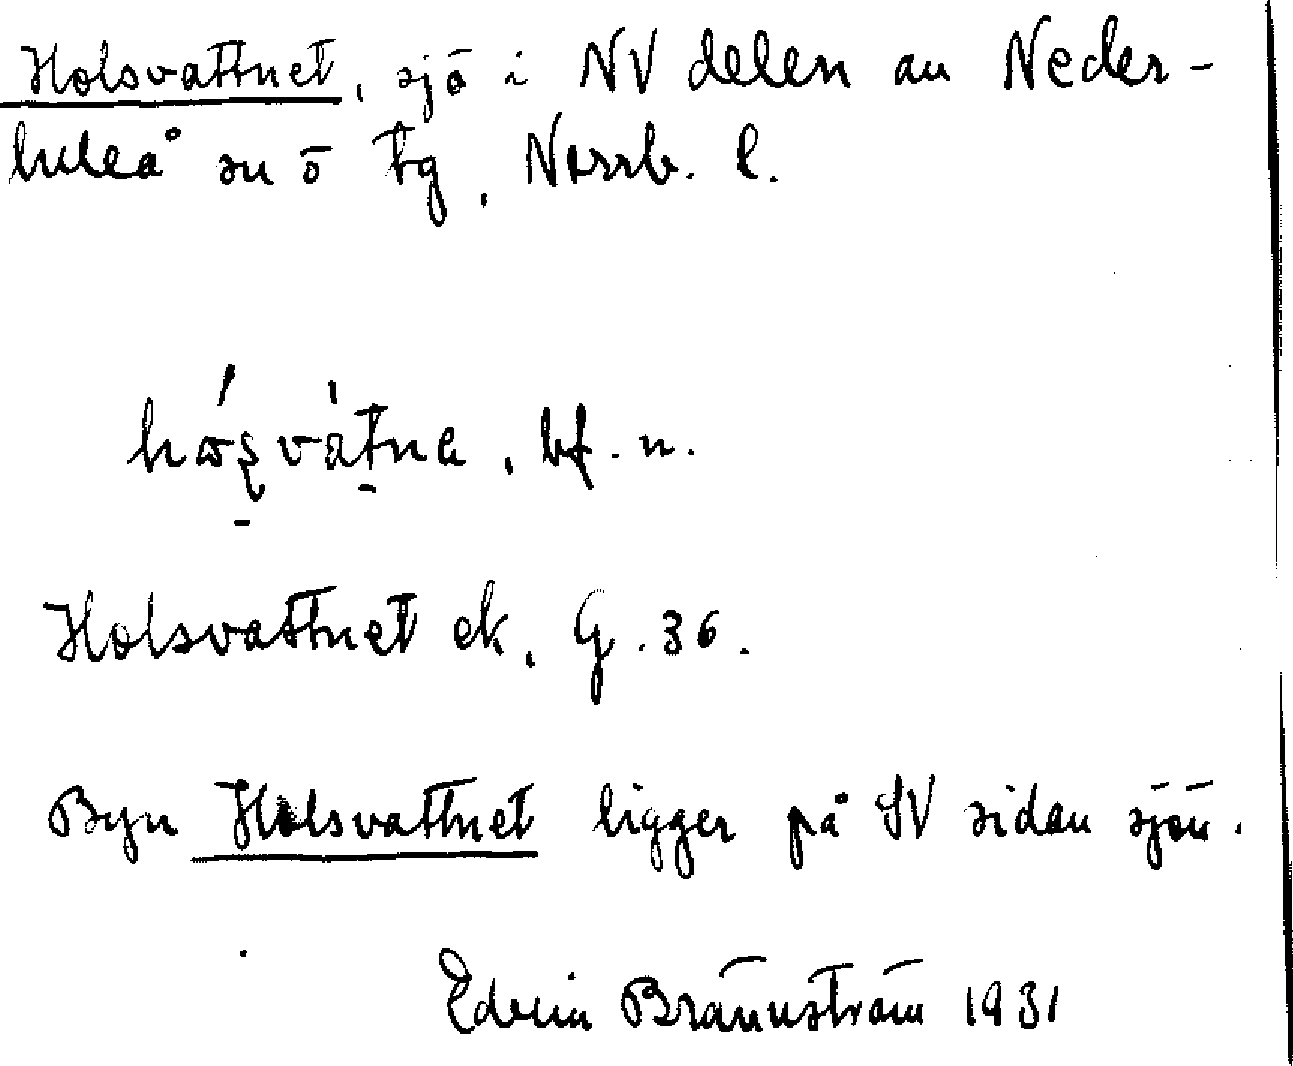 Holsvattnet, sjö i NV delen av Neder-
luleå sn ö tg, Norrb. l.
bf. n.
Holsvattnet ek. G. 36.
Byn Holsvattnet ligger på SV sidan sjön.
Edvin Brännström 1931